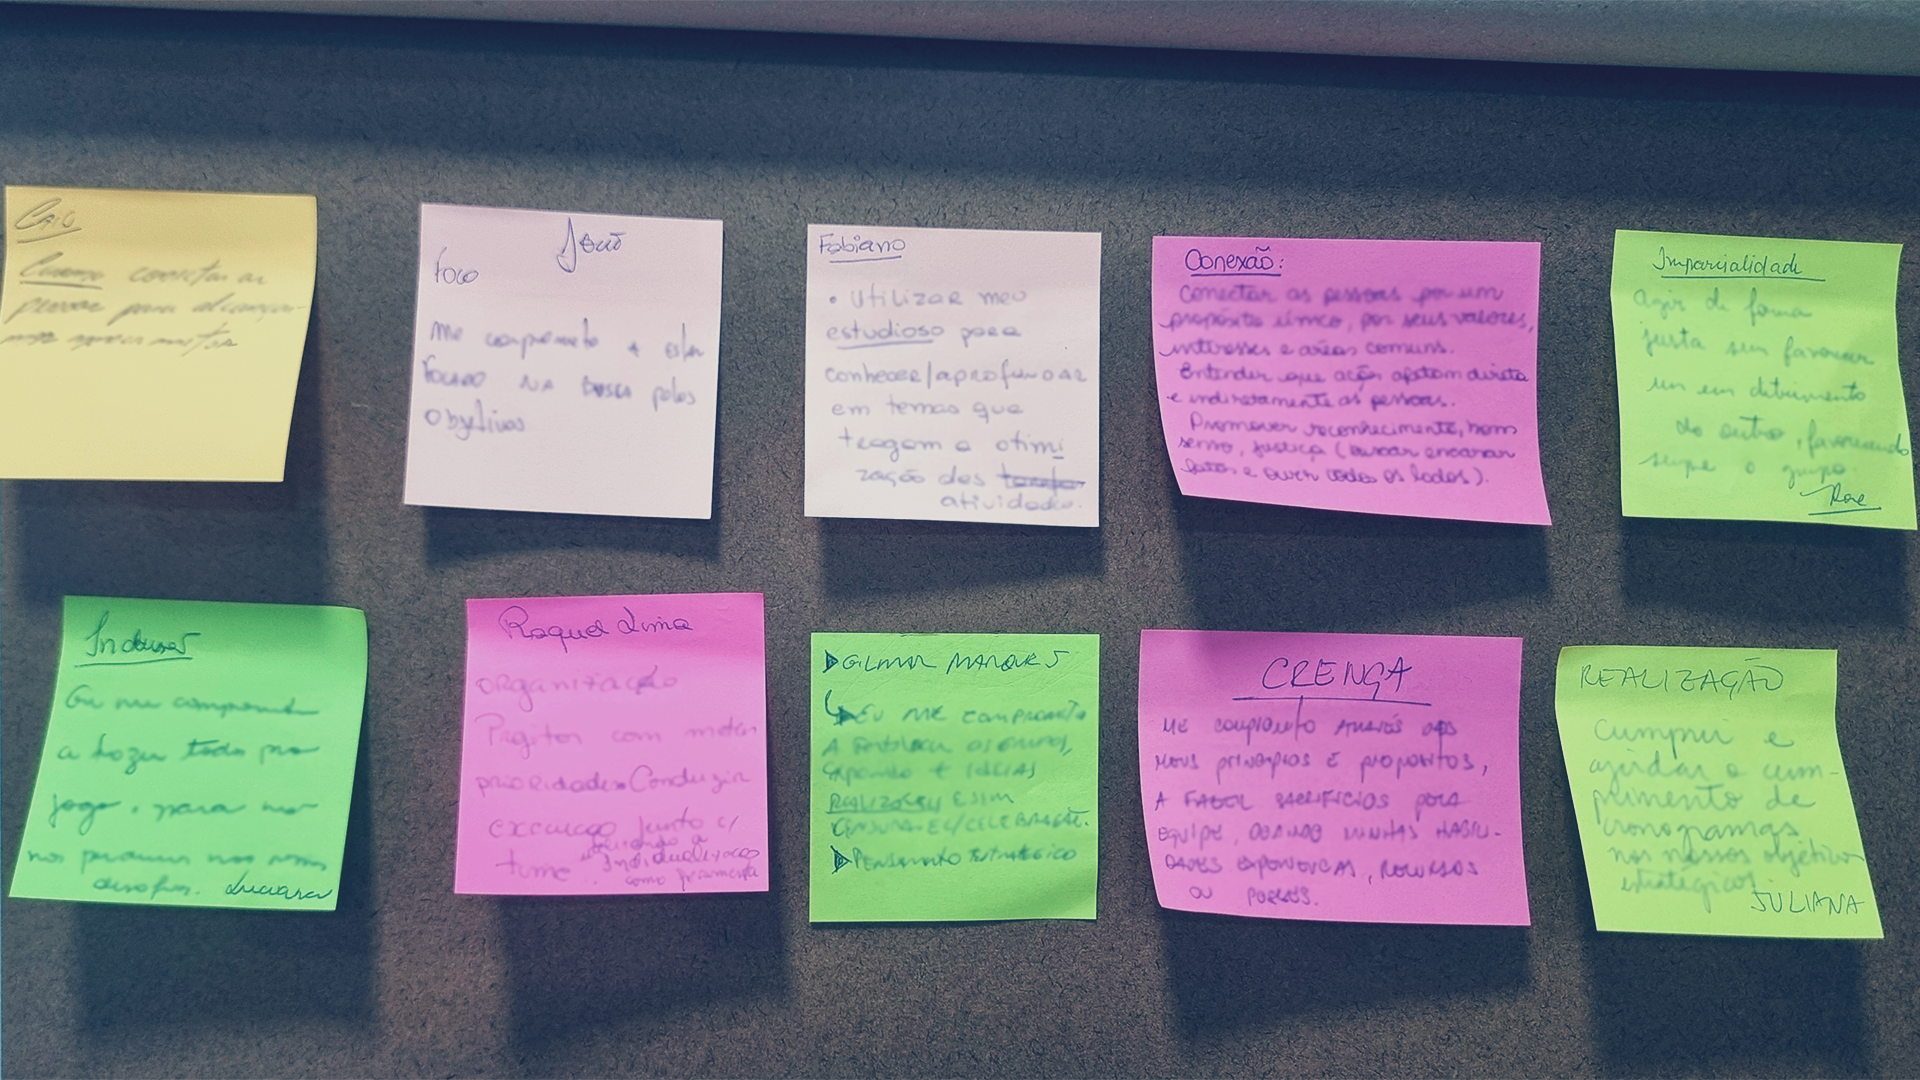 Caio
conectar as
pessoas para alcançar
João
Foco
Me comprometo a estar
focado na busca pelos
objetivos
Fabiano
• Utilizar meu
estudioso para
conhecer/aprofundar
em temas que
tragam a otimi
zação das tarefas
atividades.
Conexão:
Conectar as pessoas por um
propósito único, por seus valores,
interesses e áreas comuns.
Entender que ações afetam direta
e indiretamente as pessoas.
Promover reconhecimento, bom
senso, justiça (buscar encarar
fatos e ouvir todos os lados).
Imparcialidade
agir de forma
justa sem favorecer
um em detrimento
do outro, favorecendo
sempre o grupo
Rose
Eu me comprometo
a fazer todo
jogo, para
nos nossos
desafios. Luciana
Raquel Lima
organização
Projetos com metas
prioridades Conduzir
execução junto c/
time
Individualização
como ferramenta
GILMAR MARQUES
EU ME COMPROMETO
A FORTALECER
+ IDEIAS
PENSAMENTO ESTRATÉGICO
CRENÇA
ME COMPROMETO ATRAVÉS DOS
MEUS PRINCÍPIOS E PROPÓSITOS,
A FAZER SACRIFÍCIOS PELA
EQUIPE, DOANDO MINHAS HABILI-
DADES EXPERIÊNCIAS, RECURSOS
OU POSSES.
REALIZAÇÃO
Cumprir e
ajudar o cum-
primento de
cronogramas
nos nossos objetivos
estratégicos.
JULIANA